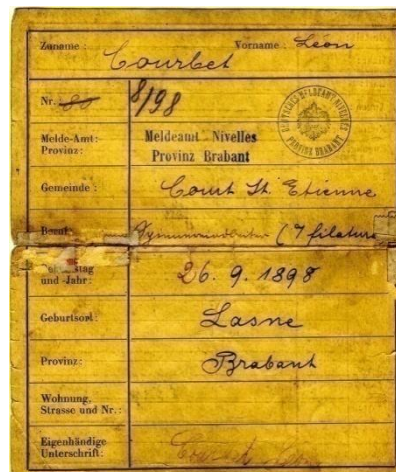 Zuname: Courbet Vorname: Léon
Nr. 80 8/98
DEUTSCHES MELDEAMT NIVELLES
PROVINZ BRABANT
Melde-Amt: Meldeamt Nivelles
Provinz: Provinz Brabant
Gemeinde: Court St. Etienne
Beruf: (7 filature
und Jahr: 26. 9. 1898
Geburtsort: Lasne
Provinz: Brabant
Wohnung,
Strasse und Nr.:
Eigenhändige
Unterschrift: Courbet